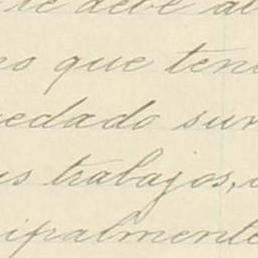 te debe al
no que ten
edado sur
us trabajos,
ipalmente